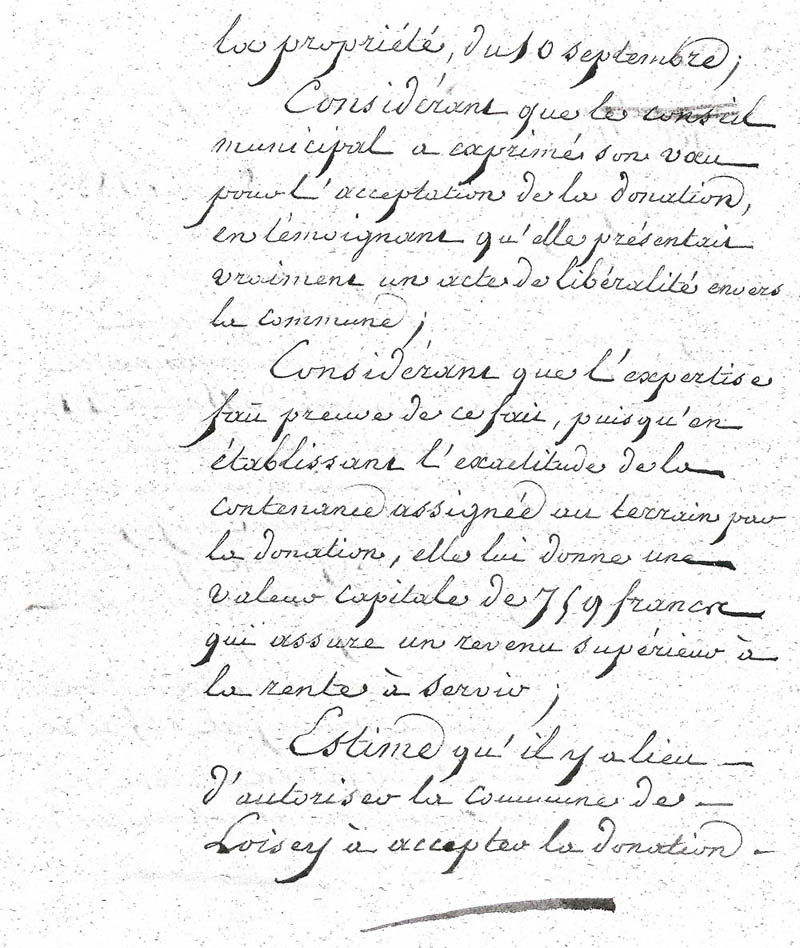 la propriété, du 10 septembre;
Considérant que le conseil
municipal a exprimé son vœu
pour l'acceptation de la donation,
en témoignant qu'elle présentait
vraiment un acte de libéralité envers
la commune;
Considérant que l'expertise
fait preuve de ce fait, puisqu'en
établissant l'exactitude de la
contenance assignée au terrain par
la donation, elle lui donne une
valeur capitale de 759 francs
qui assure un revenu supérieur à
la rente à servir;
Estime qu'il y a lieu
d'autoriser la commune de
Loisey à accepter la donation.